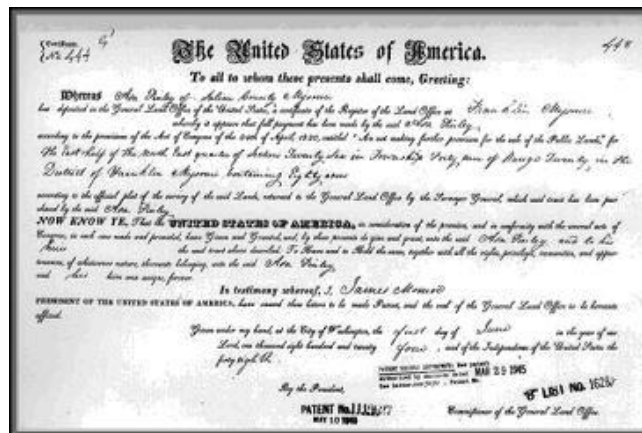 Certificate
No 444
448
The United States of America.
To all to whom these presents shall come, Greeting:
Whereas Asa Finley of Saline County Missouri
has deposited in the General Land Office of the United States, a certificate of the Register of the Land Office at Franklin Missouri
whereby it appears that full payment has been made by the said Asa Finley
according to the provisions of the Act of Congress of the 24th of April, 1820, entitled "An act making further provision for the sale of the Public Lands," for
the East half of the North East quarter of Section Twenty Six in Township Forty, nine of Range Twenty, in the
District of Franklin Missouri Containing Eighty acres
according to the official plat of the survey of the said Lands, returned to the General Land Office by the Surveyor General, which said tract has been purchased by the said Asa Finley
NOW KNOW YE, That the UNITED STATES OF AMERICA, in consideration of the premises, and in conformity with the several acts of
Congress, in such case made and provided, have Given and Granted, and, by these presents do give and grant, unto the said Asa Finley, and to his
heirs the said tract above described: To Have and to Hold the same, together with all the rights, privileges, immunities, and appur-
tenances, of whatsoever nature, thereunto belonging, unto the said Asa Finley
and his heirs and assigns, forever.
In testimony whereof, I, James Monroe
PRESIDENT OF THE UNITED STATES OF AMERICA, have caused these letters to be made Patent, and the seal of the General Land Office to be hereunto
affixed.
Given under my hand, at the City of Washington, the first day of June in the year of our
Lord, one thousand eight hundred and twenty four, and of the Independence of the United States the
forty eighth
MAR 29 1945
By the President,
PATENT No.
MAY 10 1945
LIST NO.
Commissioner of the General Land Office.